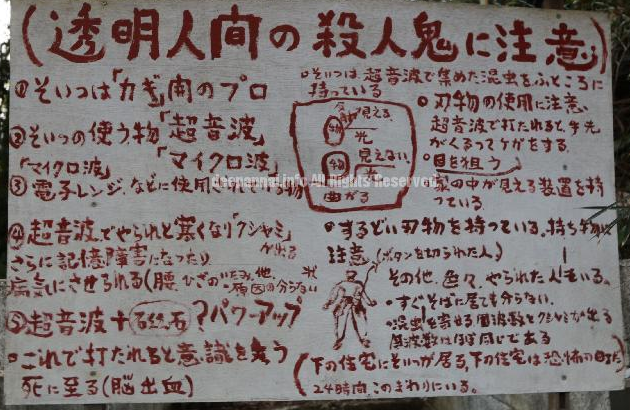 (透明人間の殺人鬼に注意)
①そいつは「カギ」開のプロ
②そいつの使う物「超音波」
「マイクロ波」「マイクロ波」
③電子レンジなどに使用されている物
④超音波でやられると寒くなり「クシャミ」が出る
さらに記憶障害になったり
病気にさせられる(腰 ひざのいたみ 他
原因の分らない
⑤超音波+磁石?パワーアップ
○これで打たれると意識を失う
死に至る(脳出血)
○そいつは、超音波で集めた混虫をふところに
持っている
見える
物
光
物
見えない
光
曲がる
○刃物の使用に注意
超音波で打たれると、手先
がくるってケガをする。
○目を狙う
家の中が見える装置を持
っている
○するどい刃物を持っている、持ち物に
注意(ボタンを切られた人)
その他、色々、やられた人もいる。
・すぐそばに居ても分らない。
・混虫を寄せる周波数とクシャミが出る
周波数はほぼ同じである
(下の住宅にそいつが居る、下の住宅は恐怖の
24時間、このまわりにいる。
deepannai.info All Rights Reserved.